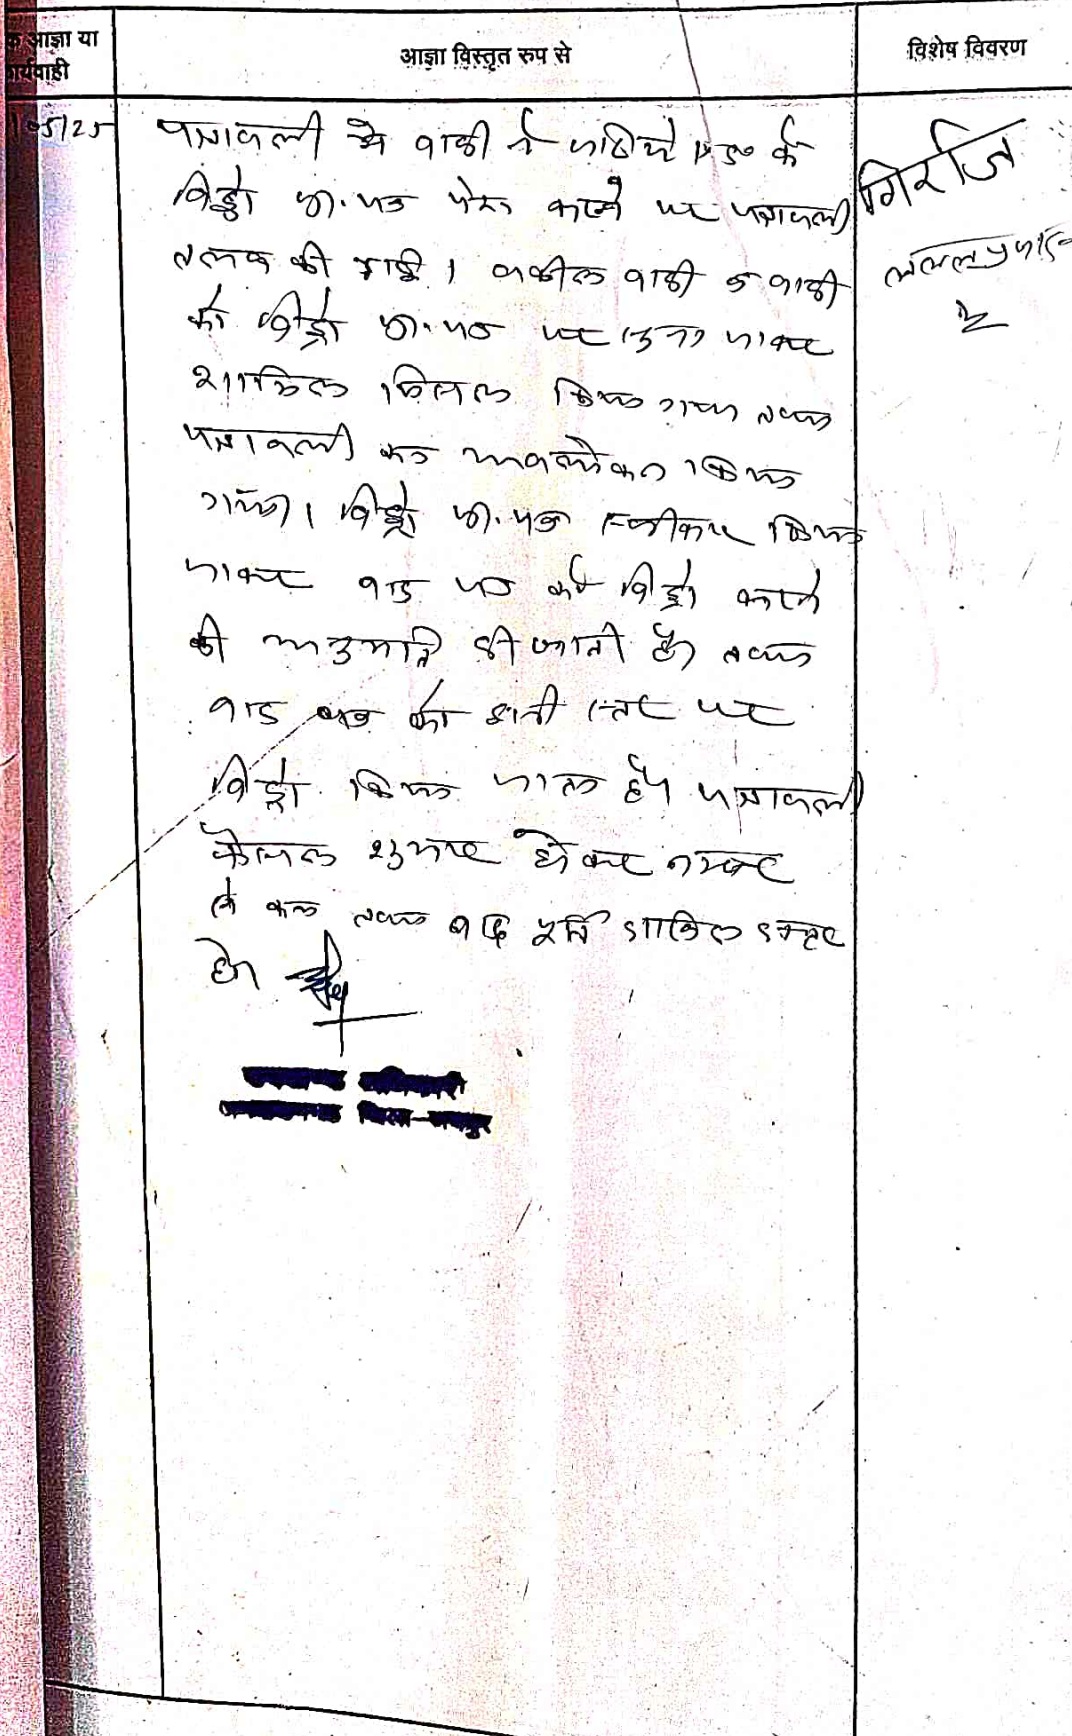 क आज्ञा या
कार्यवाही
आज्ञा विस्तृत रुप से
विशेष विवरण
05/25
पत्रावली में वादी ने जरिये के
विड्रो प्रा.पत्र पेश करने पर पत्रावली
तलब की गई। वकील वादी व वादी
को विड्रो प्रा.पत्र पर सुना जाकर
शामिल मिसल किया गया तथा
पत्रावली का अवलोकन किया
गया। विड्रो प्रा.पत्र स्वीकार किया
जाकर वाद पत्र को विड्रो करने
की अनुमति दी जाती है। तथा
वाद पत्र को इसी स्तर पर
विड्रो किया जाता है। पत्रावली
फैसल शुमार होकर नम्बर
से कम तथा बाद पूर्ति दाखिल दफ्तर
हो।
गिर्राज
उपखण्ड अधिकारी
जिला-जयपुर